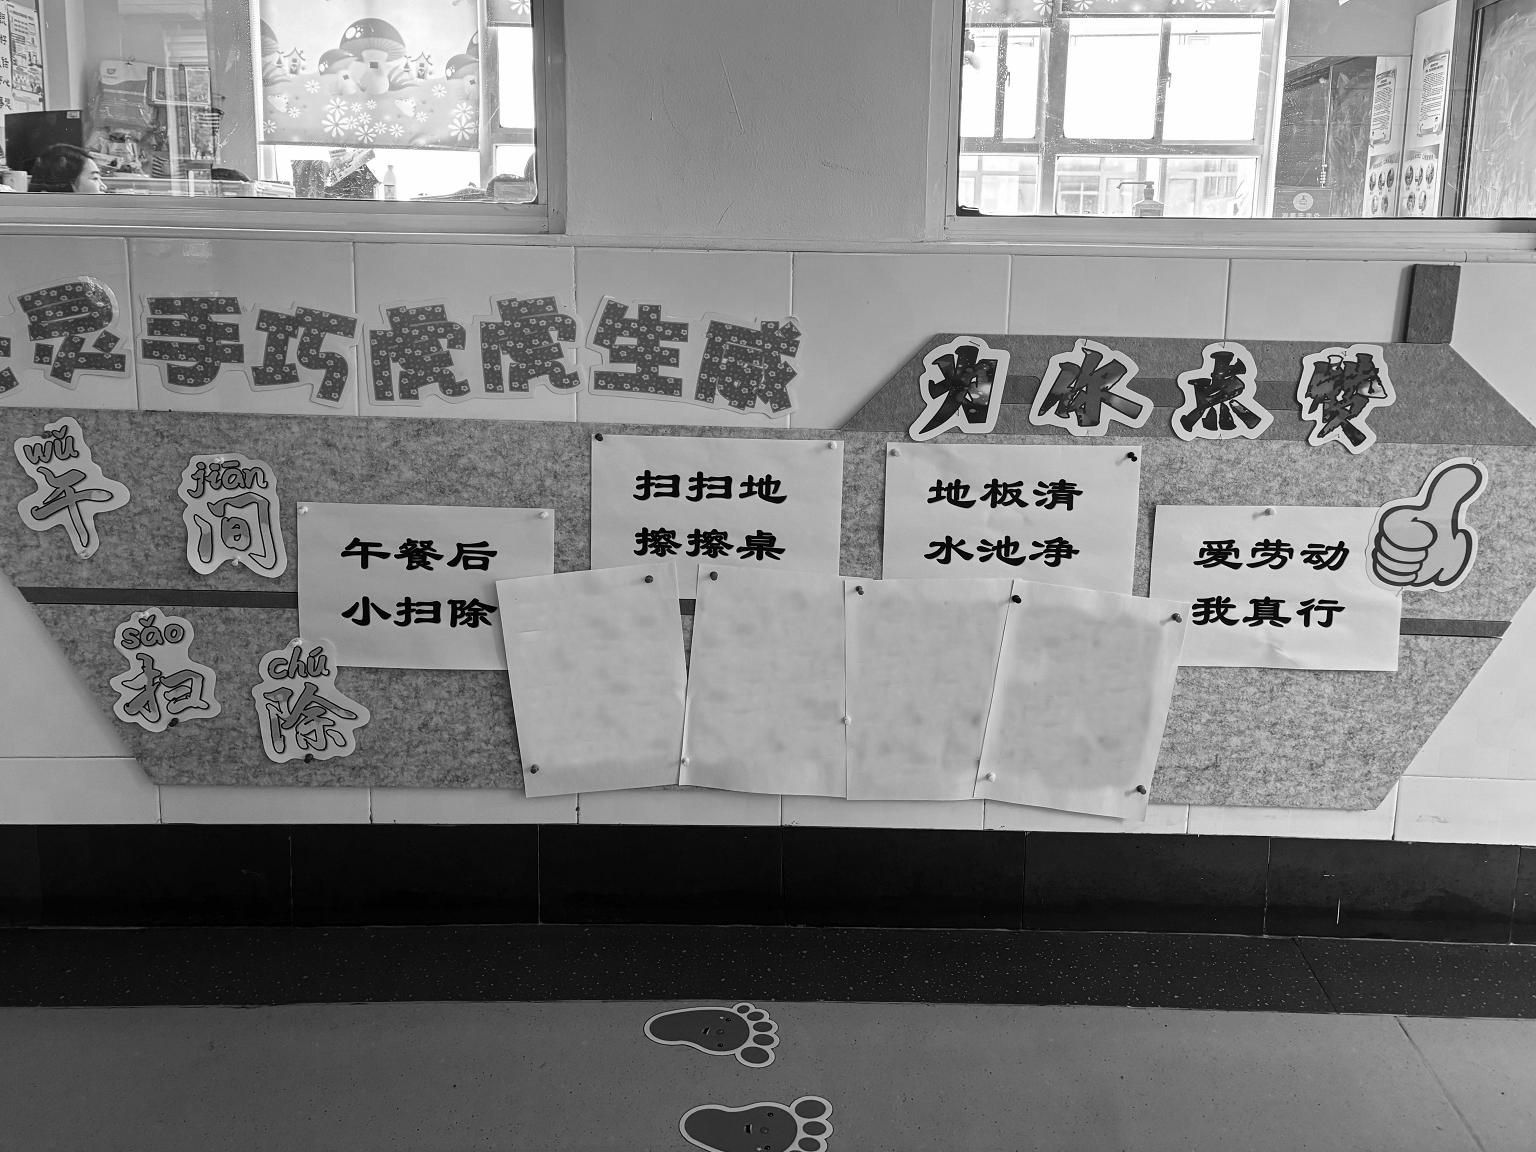 灵手巧虎虎生威
为你点赞
wǔ
午
jiān
间
sǎo
扫
chú
除
午餐后
小扫除
扫扫地
擦擦桌
地板清
水池净
爱劳动
我真行